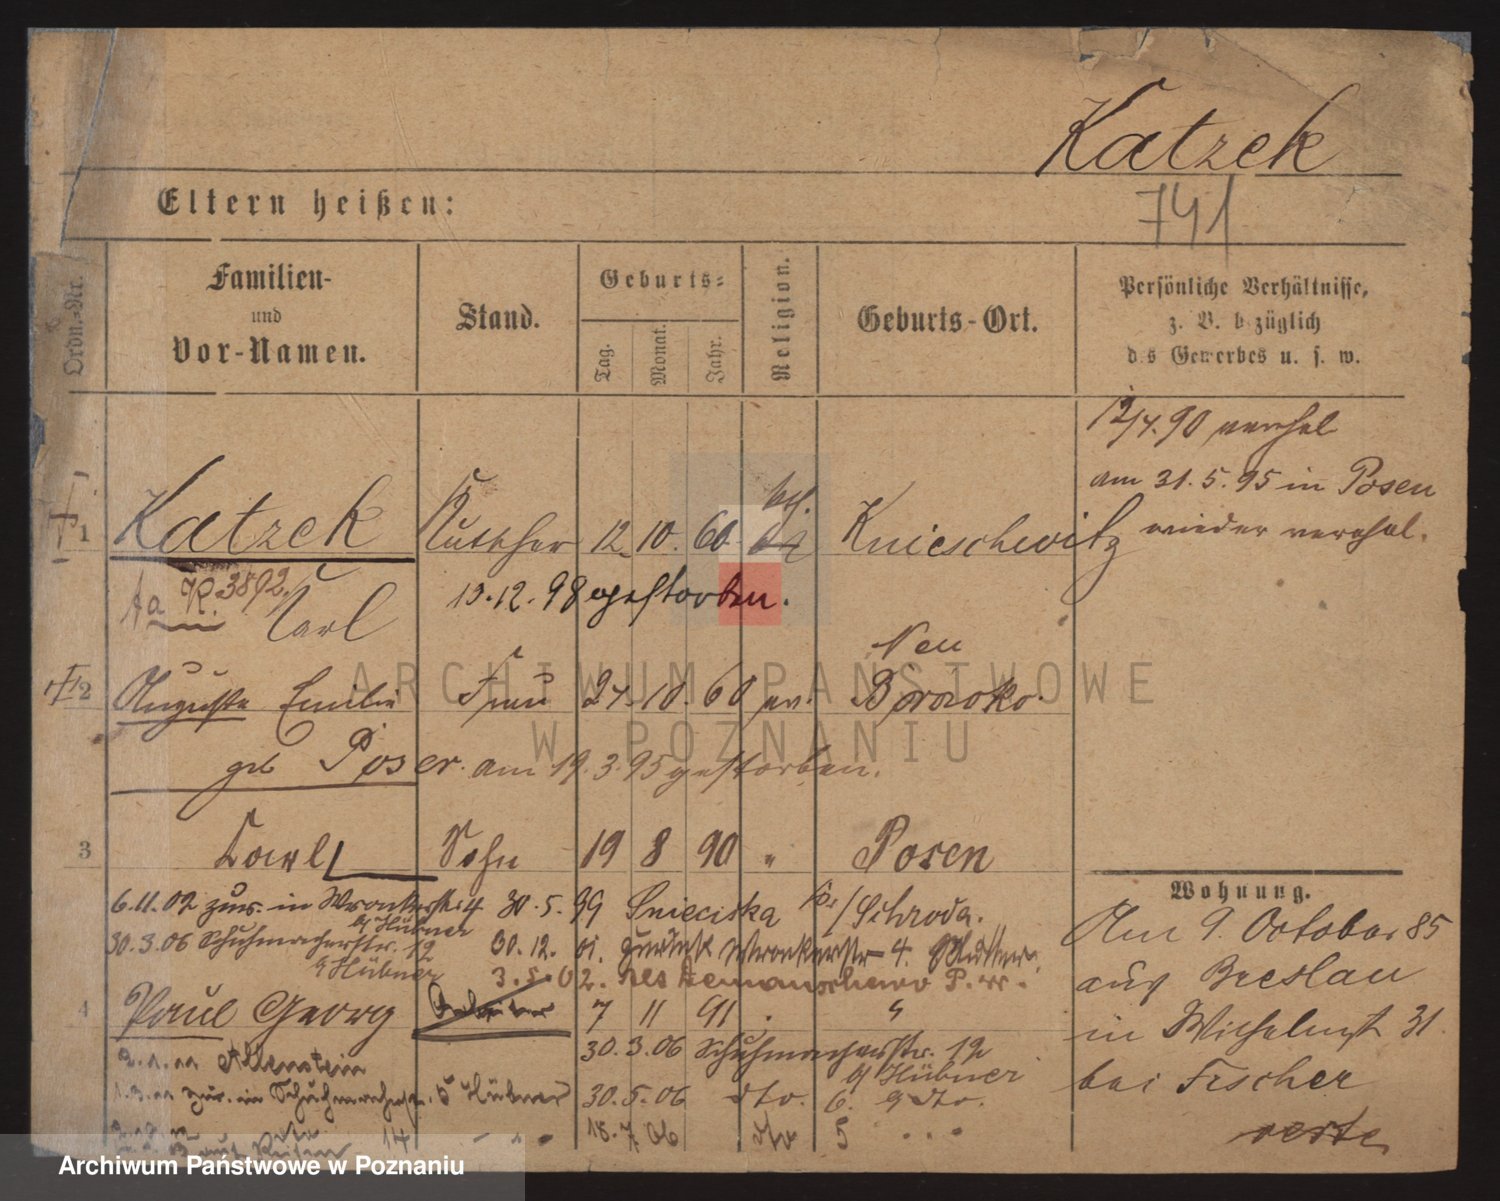 Katzek
741
Eltern heißen:
Ordn.-Nr.
Familien-
und
Vor-Namen.
Stand.
Geburts-
Tag.
Monat.
Jahr.
Religion.
Geburts-Ort.
Persönliche Verhältnisse,
z. B. bezüglich
des Gewerbes u. s. w.
12/4.90 verehel
am 31.5.95 in Posen
wieder verehel.
1 Katzek Kutscher 12. 10. 60. Knieschewitz
K. 3892. Karl 13.12.98 gestorben.
2 Auguste Emilie Frau 24. 10. 60 ev. Neu Boroko.
geb Poser. am 19.3.95 gestorben.
3 Karl Sohn 19 8 90 " Posen
6.11.02 zur. in Wronkerstr 4 30.5.99 Snieciska Kr./Schroda.
b/ Hübner
30.3.06 Schuhmacherstr. 12 30.12.01. zurück Wronkerstr 4. Mutter.
b/ Hübner 3.5.02.
4 Paul Georg Arbeiter 7 11 91 "
2.1.11 Allenstein 30.3.06 Schuhmacherstr. 12
b/ Hübner
1.3.11 zur. in Schuhmacherstr. 5 Hübner 30.5.06 dto. 6. b/ dto.
14 18.7.06 dto 5
Wohnung.
Am 9. October 85
aus Breslau
in Wilhelmst 31.
bei Fischer
verte
ARCHIWUM PAŃSTWOWE
W POZNANIU
Archiwum Państwowe w Poznaniu